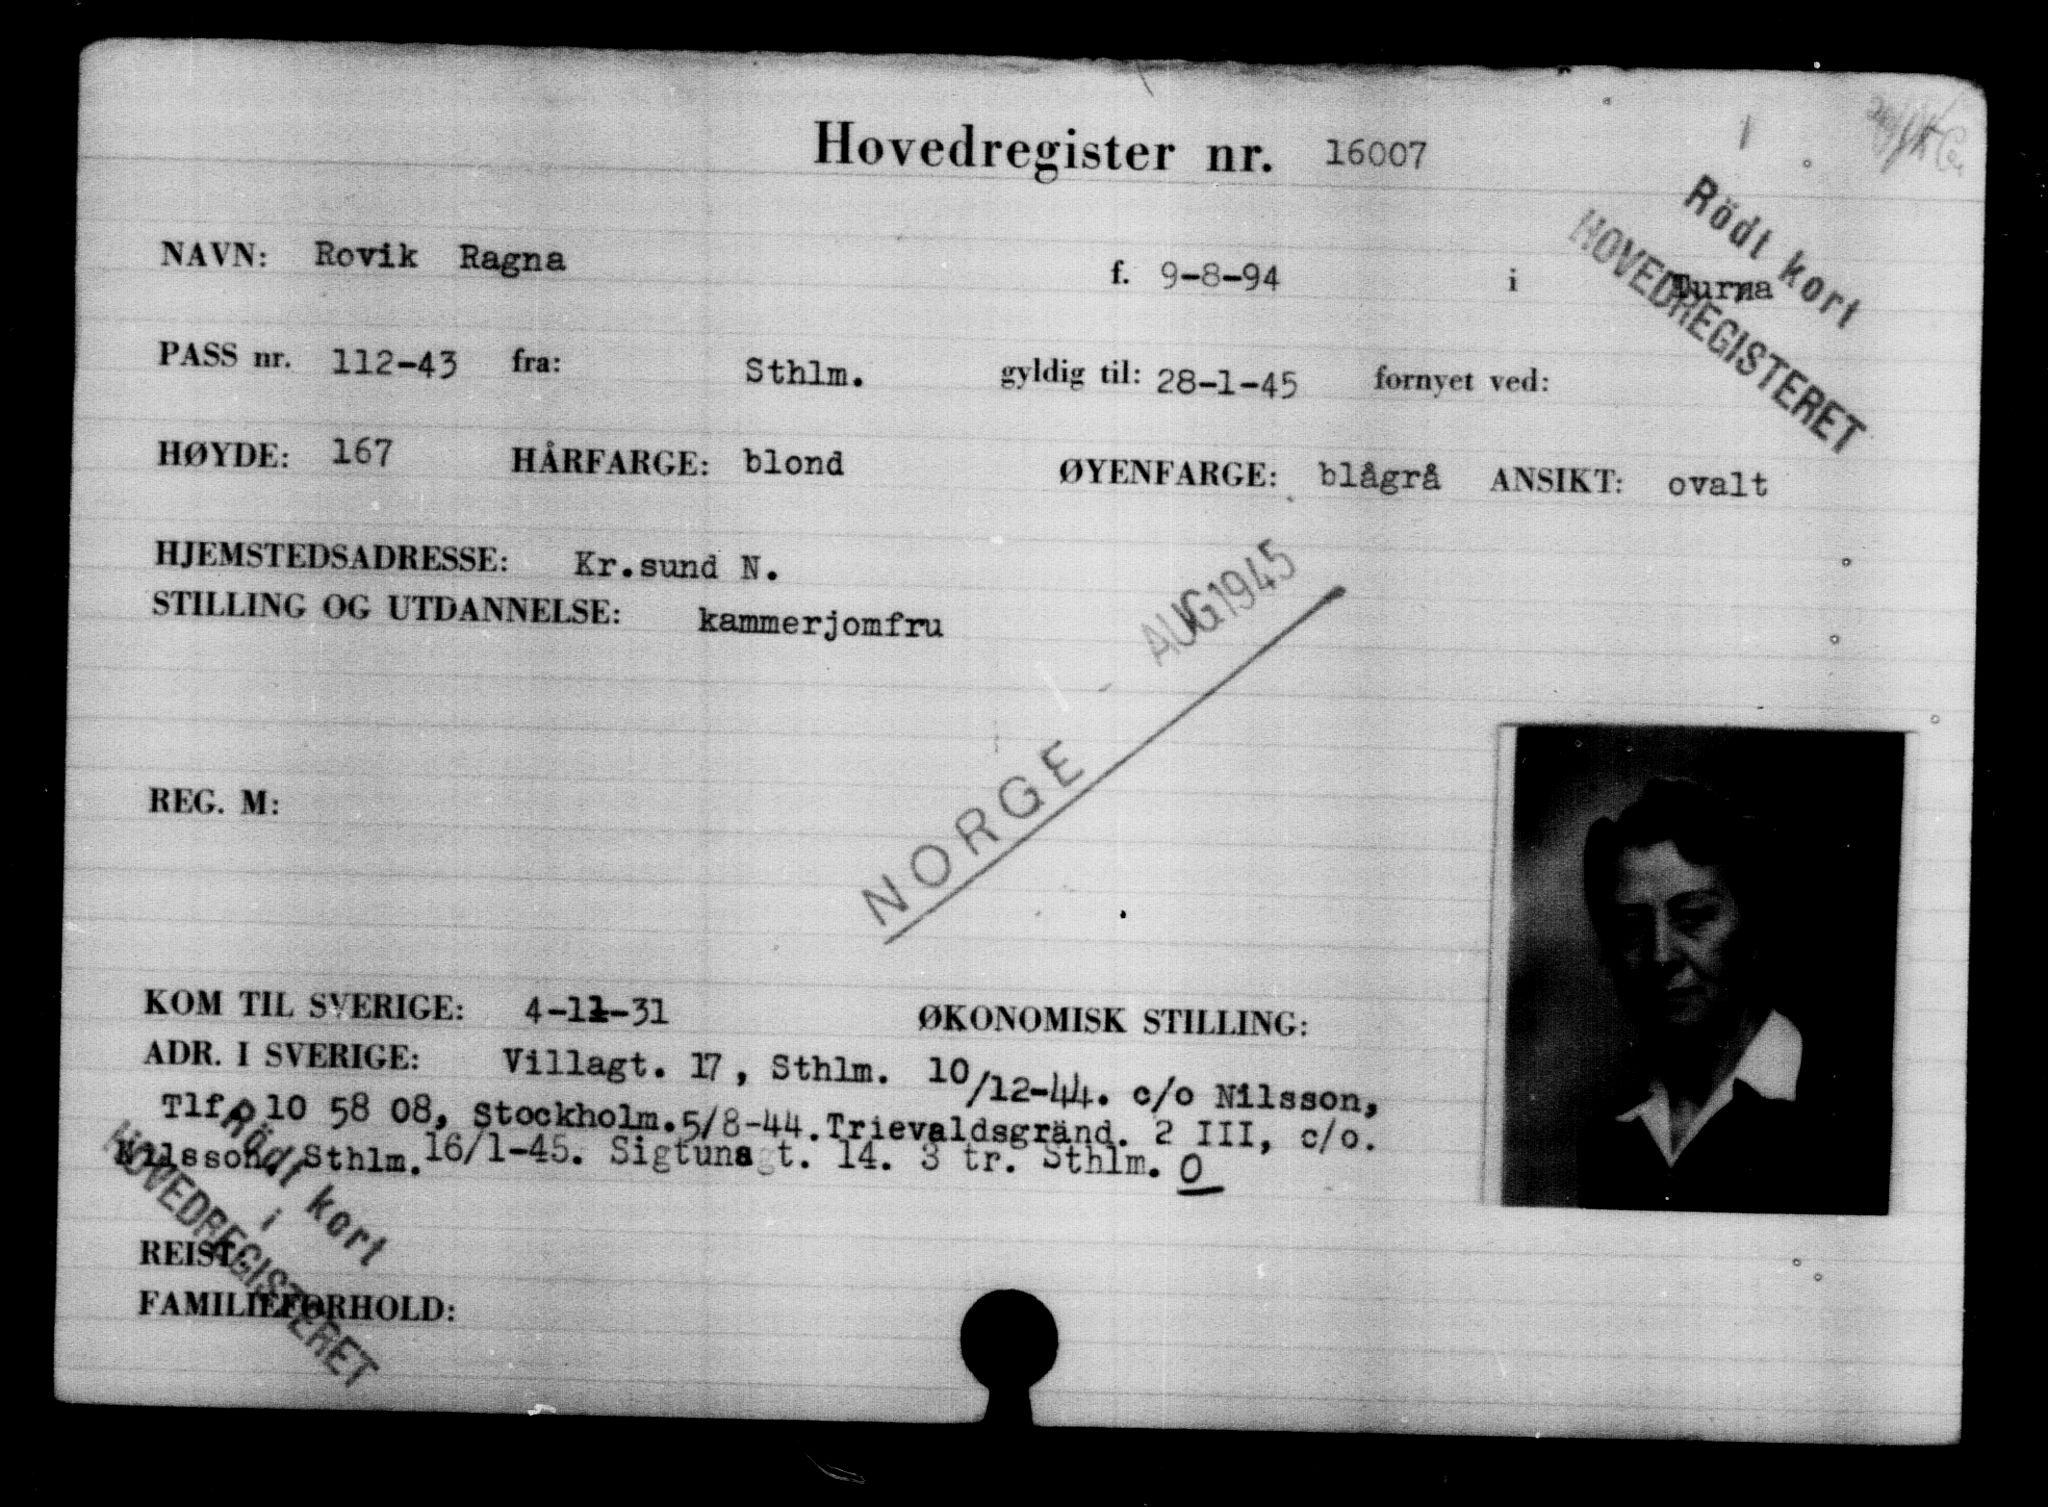 Hovedregister nr. 16007
Rödt kort
i
HOVEDREGISTERET
NAVN: Rovik Ragna f. 9-8-94 i
PASS nr. 112-43 fra: Sthlm. gyldig til: 28-1-45 fornyet ved:
HØYDE: 167 HÅRFARGE: blond ØYENFARGE: blågrå ANSIKT: ovalt
HJEMSTEDSADRESSE: Kr.sund N.
STILLING OG UTDANNELSE: kammerjomfru
AUG 1945
NORGE
REG. M:
KOM TIL SVERIGE: 4-11-31 ØKONOMISK STILLING:
ADR. I SVERIGE: Villagt. 17, Sthlm. 10/12-44. c/o Nilsson,
Tlf. 10 58 08, Stockholm. 5/8-44. Trievaldsgränd. 2 III, c/o.
Nilsson, Sthlm. 16/1-45. Sigtunagt. 14. 3 tr. Sthlm. O
Rödt kort
i
HOVEDREGISTERET
REIST:
FAMILIEFORHOLD: